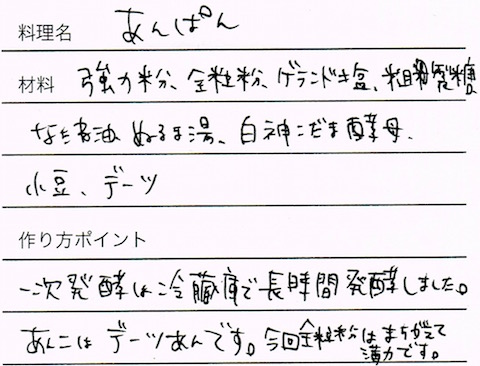 料理名 あんぱん
材料 強力粉、全粒粉、ゲランドキ塩、粗製糖、
なたね油 ぬるま湯、白神こだま酵母、
小豆、デーツ
作り方ポイント
一次発酵は冷蔵庫で長時間発酵しました。
あんこは デーツあんです。今回全粒粉はまちがえて
薄力です。